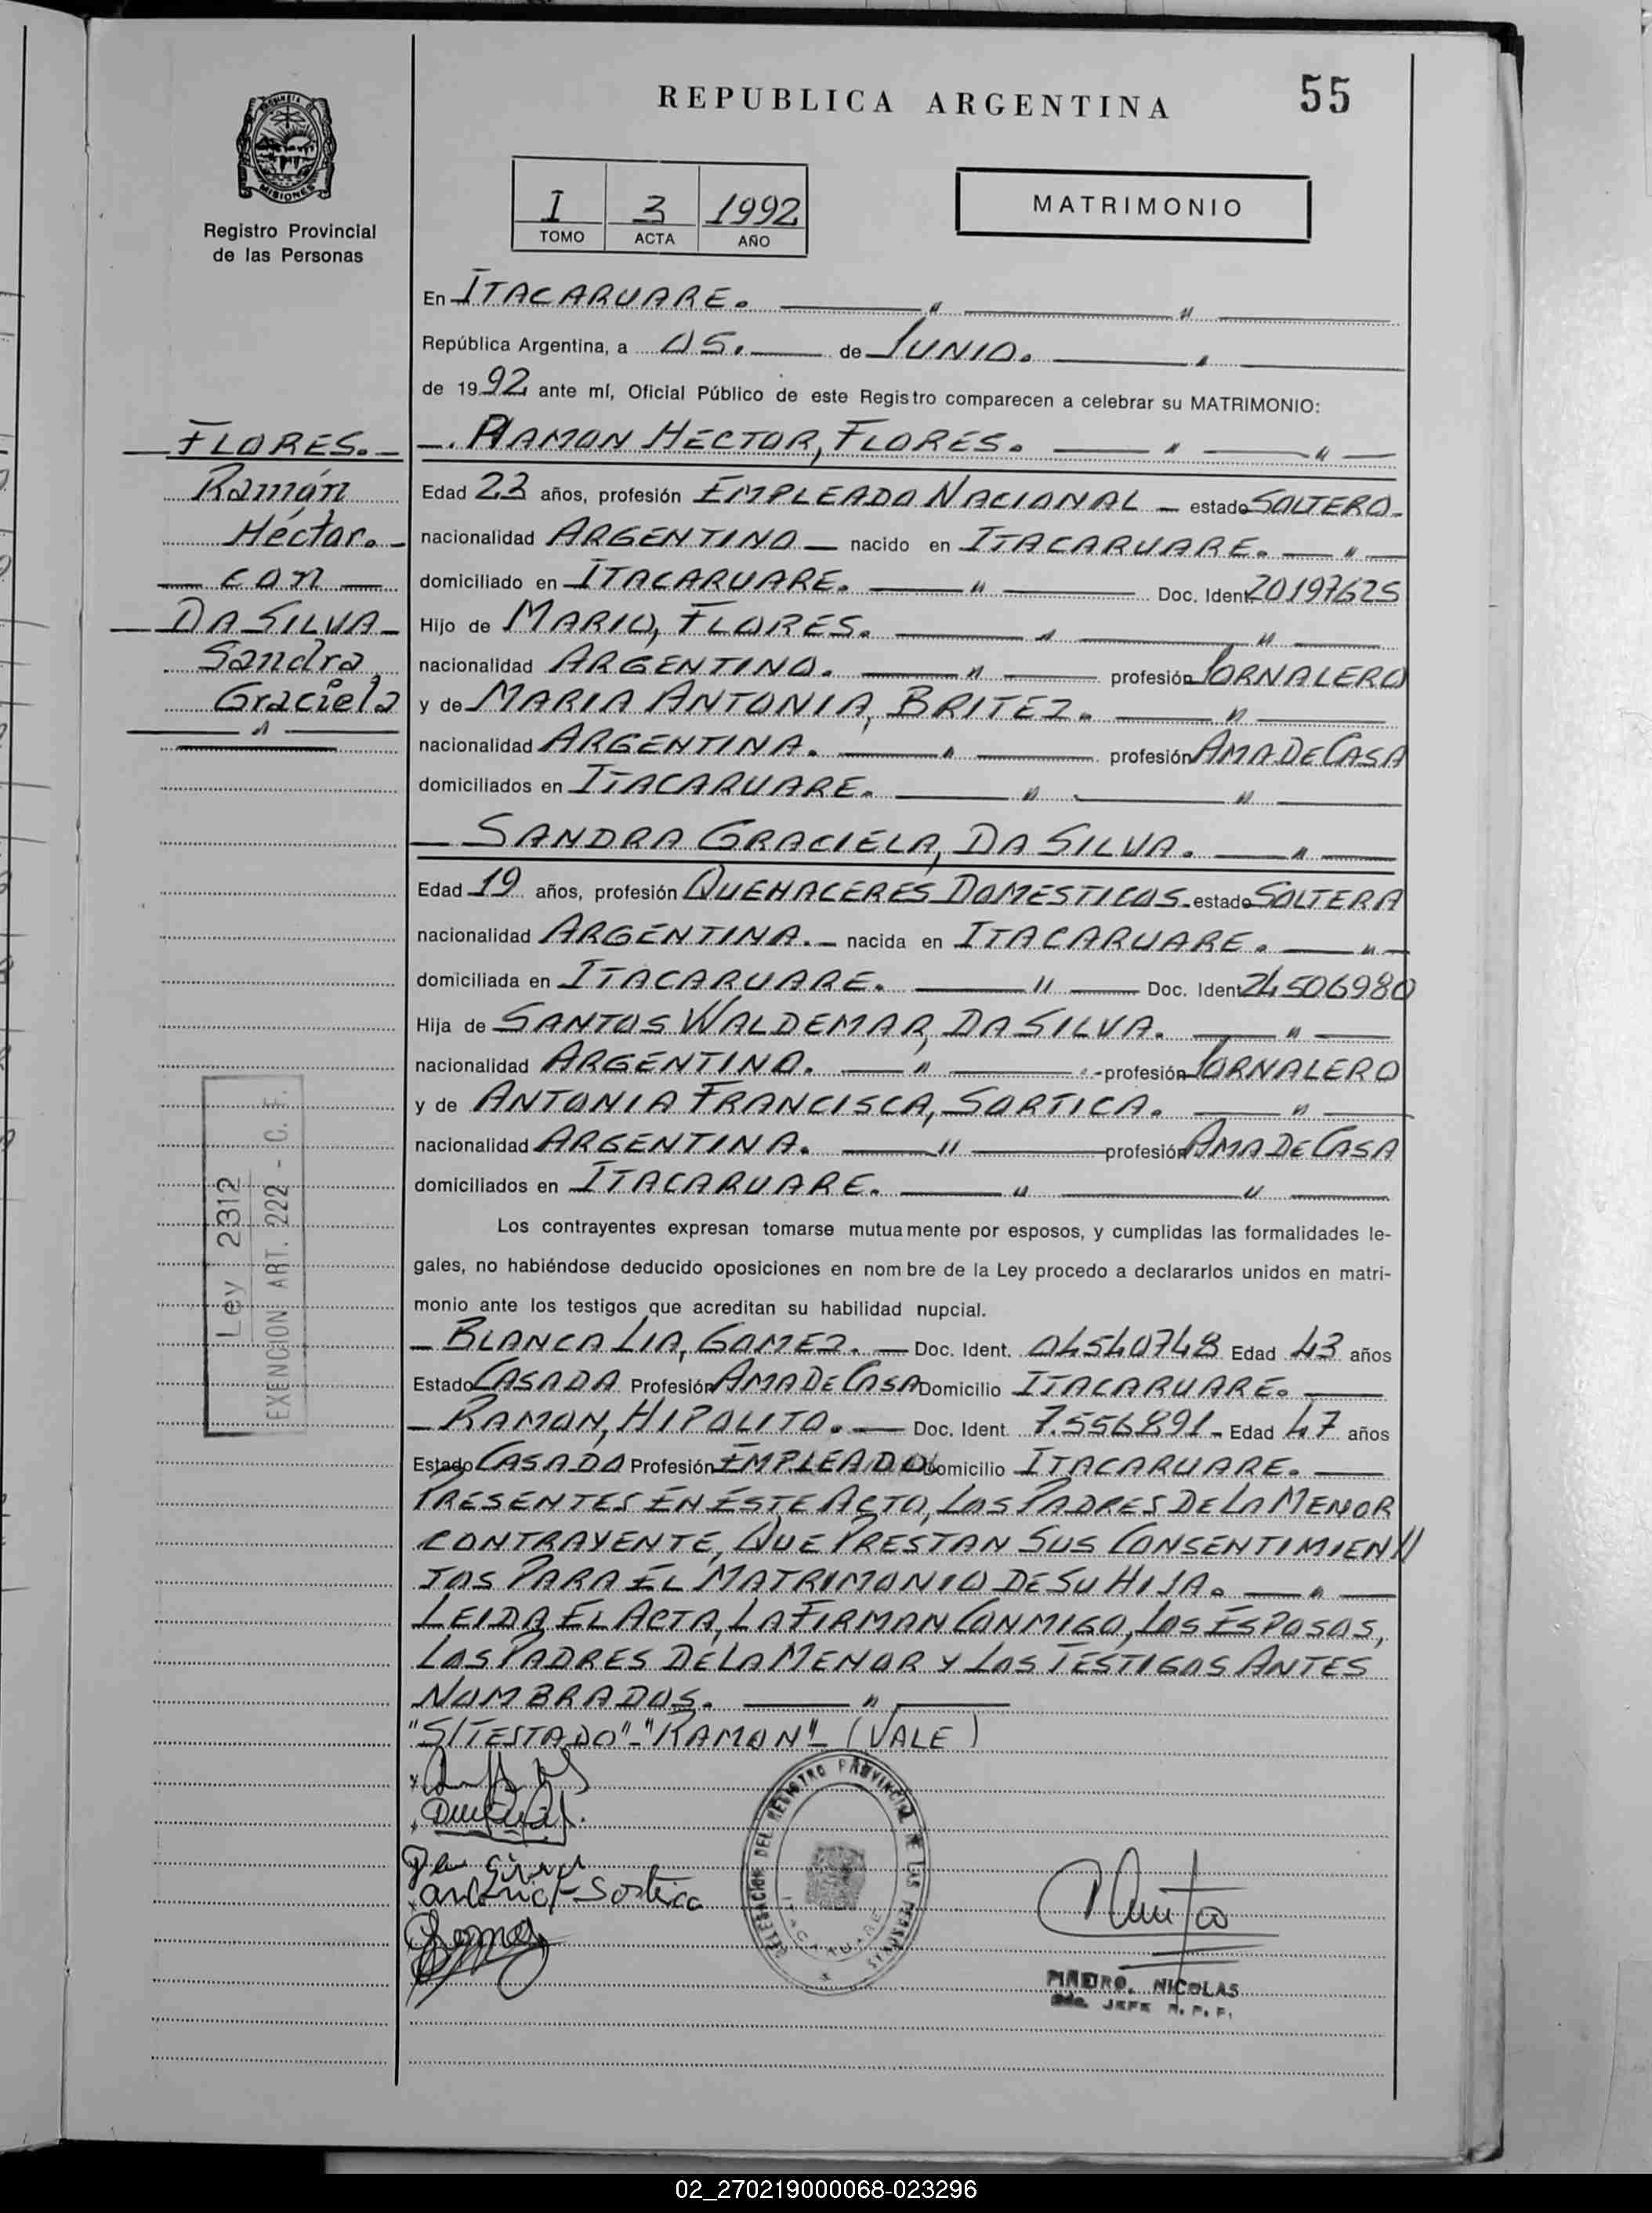 55
REPUBLICA ARGENTINA
MISIONES
Registro Provincial
de las Personas
I 3 1992
TOMO ACTA AÑO
MATRIMONIO
En ITACARUARE.
República Argentina, a 05. de JUNIO.
de 1992 ante mí, Oficial Público de este Registro comparecen a celebrar su MATRIMONIO:
FLORES.-
Ramón
Héctor.-
con
DA SILVA-
Sandra
Graciela
RAMON HECTOR, FLORES.
Edad 23 años, profesión EMPLEADO NACIONAL - estado SOLTERO-
nacionalidad ARGENTINO - nacido en ITACARUARE.
domiciliado en ITACARUARE. Doc. Ident. 20197625
Hijo de MARIO, FLORES.
nacionalidad ARGENTINO. profesión JORNALERO
y de MARIA ANTONIA, BRITEZ.
nacionalidad ARGENTINA. profesión AMA DE CASA
domiciliados en ITACARUARE.
SANDRA GRACIELA, DA SILVA.
Edad 19 años, profesión QUEHACERES DOMESTICOS. estado SOLTERA
nacionalidad ARGENTINA.- nacida en ITACARUARE.
domiciliada en ITACARUARE. Doc. Ident. 24506980
Hija de SANTOS WALDEMAR, DA SILVA.
nacionalidad ARGENTINO. profesión JORNALERO
y de ANTONIA FRANCISCA, SORTICA.
nacionalidad ARGENTINA. profesión AMA DE CASA
domiciliados en ITACARUARE.
Ley 2312
EXENCION ART. 222 - C. F.
Los contrayentes expresan tomarse mutuamente por esposos, y cumplidas las formalidades le-
gales, no habiéndose deducido oposiciones en nombre de la Ley procedo a declararlos unidos en matri-
monio ante los testigos que acreditan su habilidad nupcial.
BLANCA LIA, GOMEZ. - Doc. Ident. 04540748 Edad 43 años
Estado CASADA Profesión AMA DE CASA Domicilio ITACARUARE.
RAMON, HIPOLITO. - Doc. Ident. 7.556891- Edad 47 años
Estado CASADO Profesión EMPLEADO Domicilio ITACARUARE.
PRESENTES EN ESTE ACTO, LOS PADRES DE LA MENOR
CONTRAYENTE, QUE PRESTAN SUS CONSENTIMIEN//
TOS PARA EL MATRIMONIO DE SU HIJA.
LEIDA EL ACTA, LA FIRMAN CONMIGO, LOS ESPOSOS,
LOS PADRES DE LA MENOR Y LOS TESTIGOS ANTES
NOMBRADOS.
"S/TESTADO"-"RAMON"- (VALE)
Antonia F Sortica
DELEGACION DEL REGISTRO PROVINCIAL DE LAS PERSONAS
ITACARUARE
PIÑEIRO, NICOLAS
JEFE R. P. P.
02_270219000068-023296